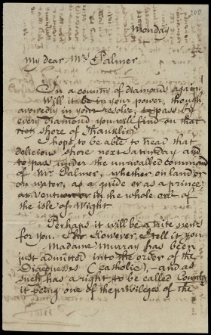 Monday
My dear Mrs Palmer
In a country of diamonds again!
Will it be in your power, though
avowedly in your
every diamond you will find on that
rich shore of Franklin?
I hope to be able to tread that
delicious shore next Saturday and
to pass under the unrivalled command
of Mrs Palmer, whether on land or
on water, as a guide or as a prince
at Ventnor or in the whole
the Isle of Wight
Perhaps it will be a nice
for you. However, I tell it you
Madame Murray has been
just admitted into the order of the
(Catholic), and as
such has a right to be called Countess
it being one of the privileges of the